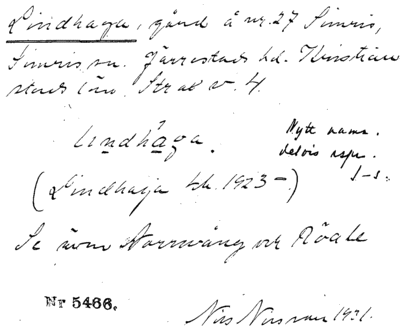 Lindhaga, gård å nr. 27 Simris,
Simris sn. Järrestads hd. Kristian
stads län. Str ax v. 4.
lindhā́ga.
Nytt namn.
delvis
(Lindhaga kb. 1923 –.)
Se även Norrvång och Röale
Nr 5466.
Nils 1931.